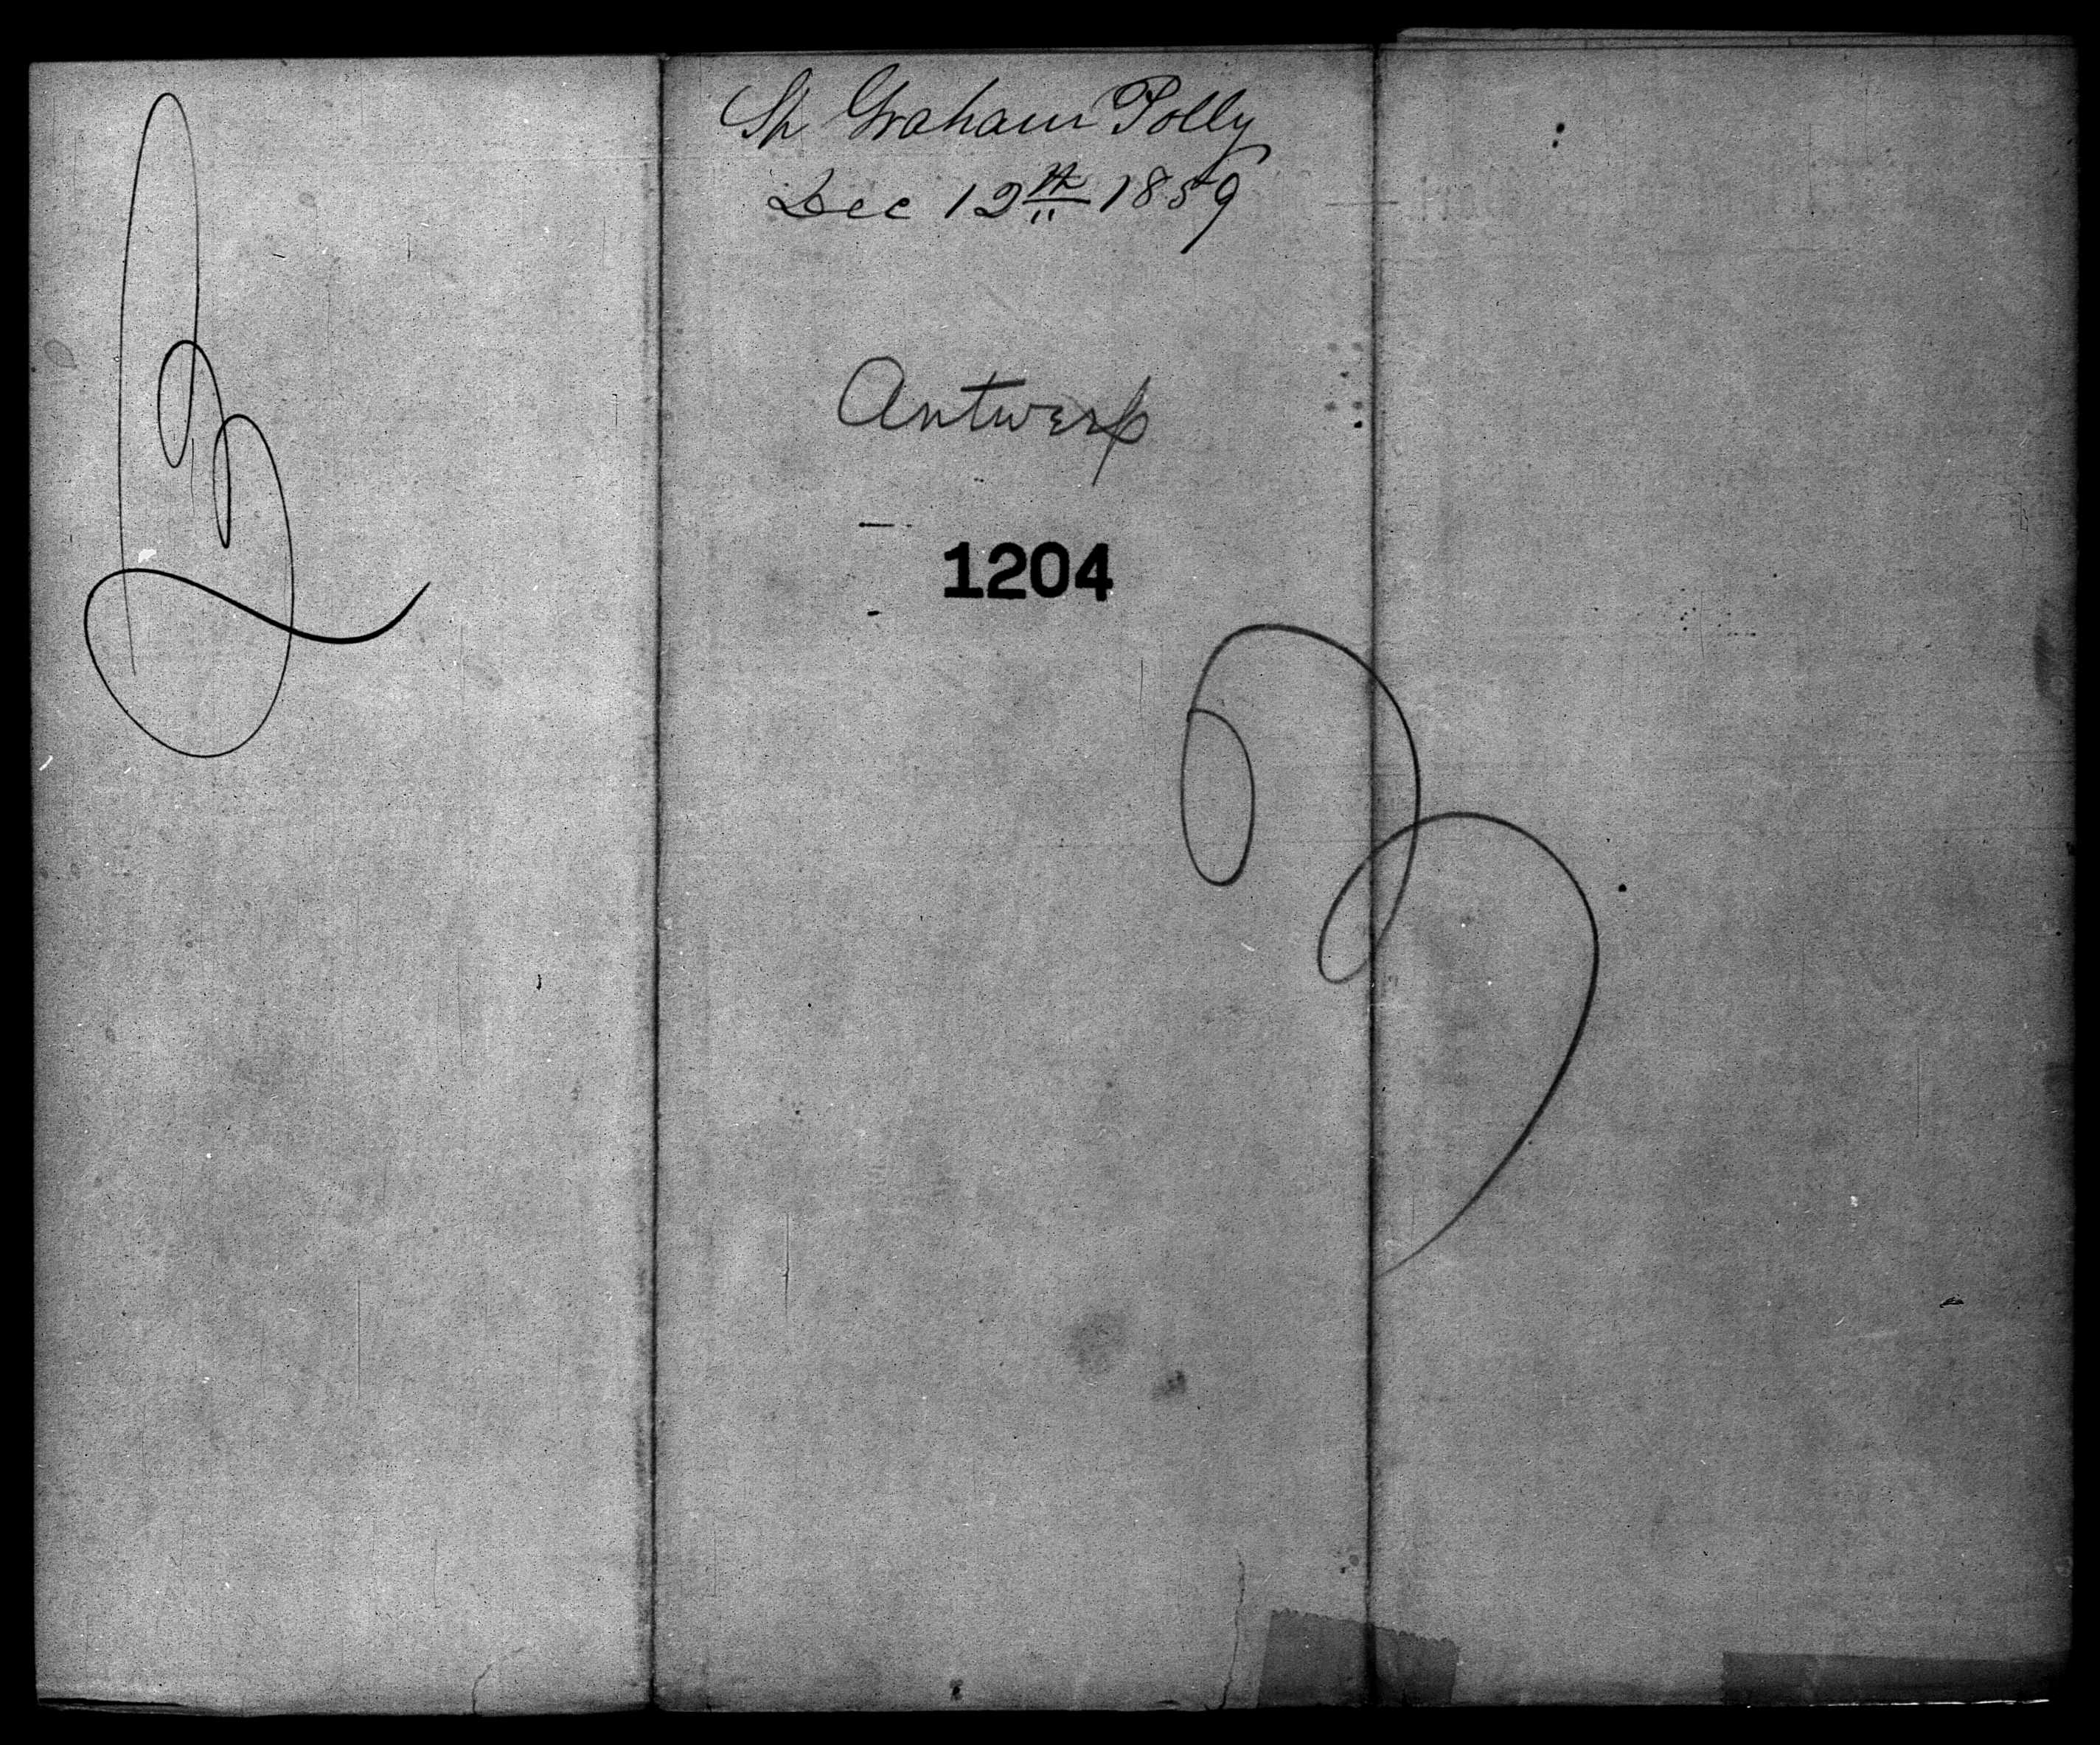 Sh Graham Polly
Dec 12th 1859
Antwerp
1204